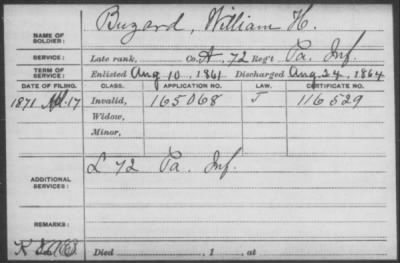 NAME OF SOLDIER: Buzard, William H.
SERVICE: Late rank, Co. A, 72 Reg't Pa. Inf.
TERM OF SERVICE: Enlisted Aug 10, 1861 Discharged Aug. 24, 1864
DATE OF FILING. CLASS. APPLICATION NO. LAW. CERTIFICATE NO.
1871 17 Invalid, 165068 116529
Widow,
Minor,
ADDITIONAL SERVICES: L 72 Pa. Inf.
REMARKS:
Died , 1 , at